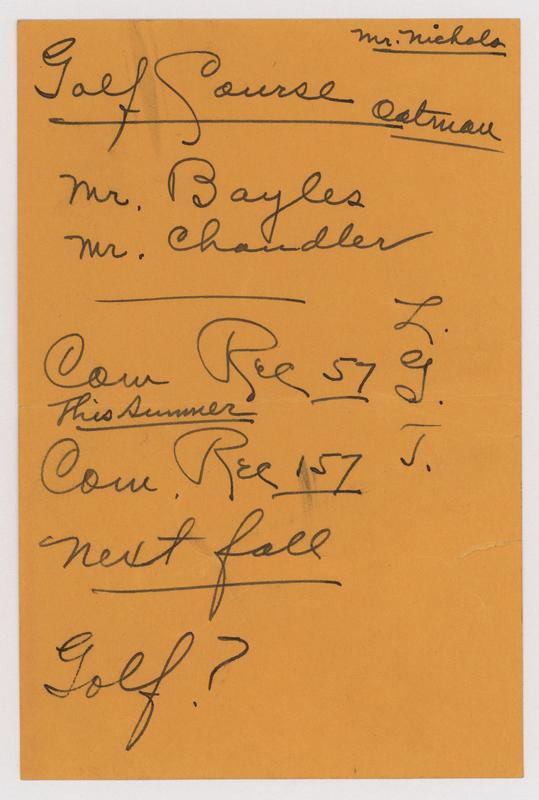 Mr. Nichols
Golf Course
Oatman
Mr. Bayles
Mr. Chandler
L.
Com Rec 57
G.
This Summer
Com. Rec 157
T.
next fall
Golf?